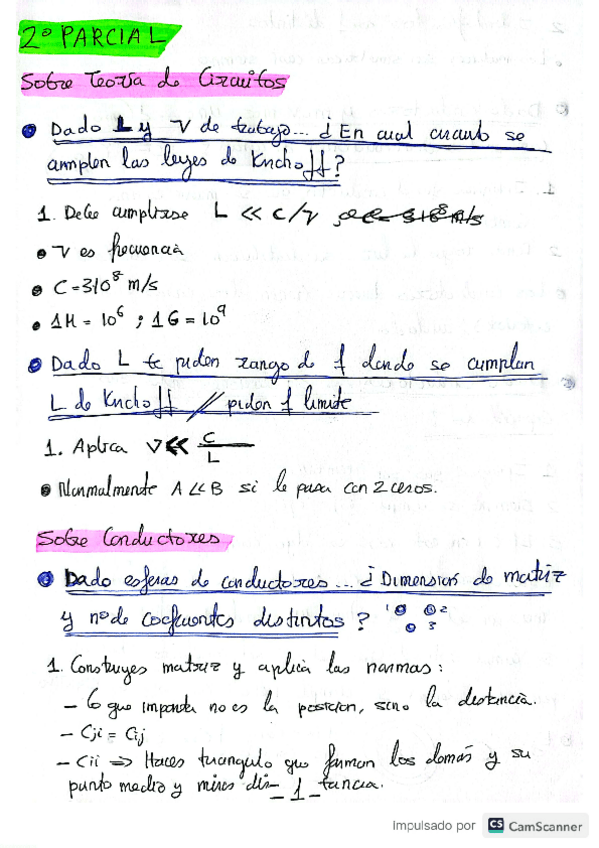 2º PARCIAL
Sobre Teoría de Circuitos
Dado L y ν de trabajo... ¿En cual cuanto se
cumplen las leyes de Kirchoff?
1. Debe cumplirse L << C/ν
ν es frecuencia
C=3·10⁸ m/s
1M = 10⁶ ; 1G = 10⁹
Dado L te piden rango de f donde se cumplan
L de Kirchoff // piden f limite
1. Aplica ν << C/L
Normalmente A << B si le pasa con 2 ceros.
Sobre Conductores
Dado esferas de conductores... ¿Dimension de matriz
y nº de coeficientes distintos? 1 2
3
1. Construyes matriz y aplica las normas:
- Lo que importa no es la posicion, sino la distancia.
- Cji = Cij
- Cii => Haces triangulo que forman los demás y su
punto medio y miras dis-
tancia.
_ 1 _
Impulsado por CS CamScanner